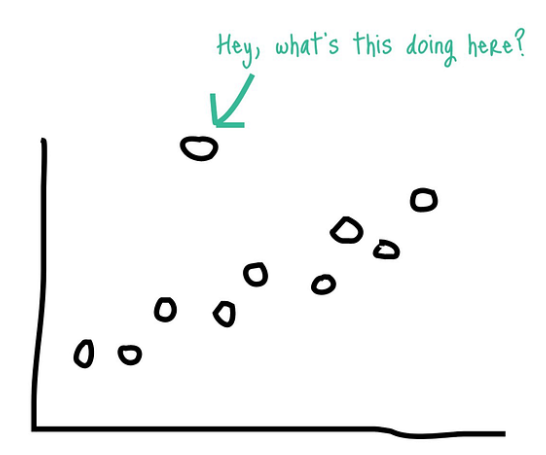 Hey, what's this doing here?